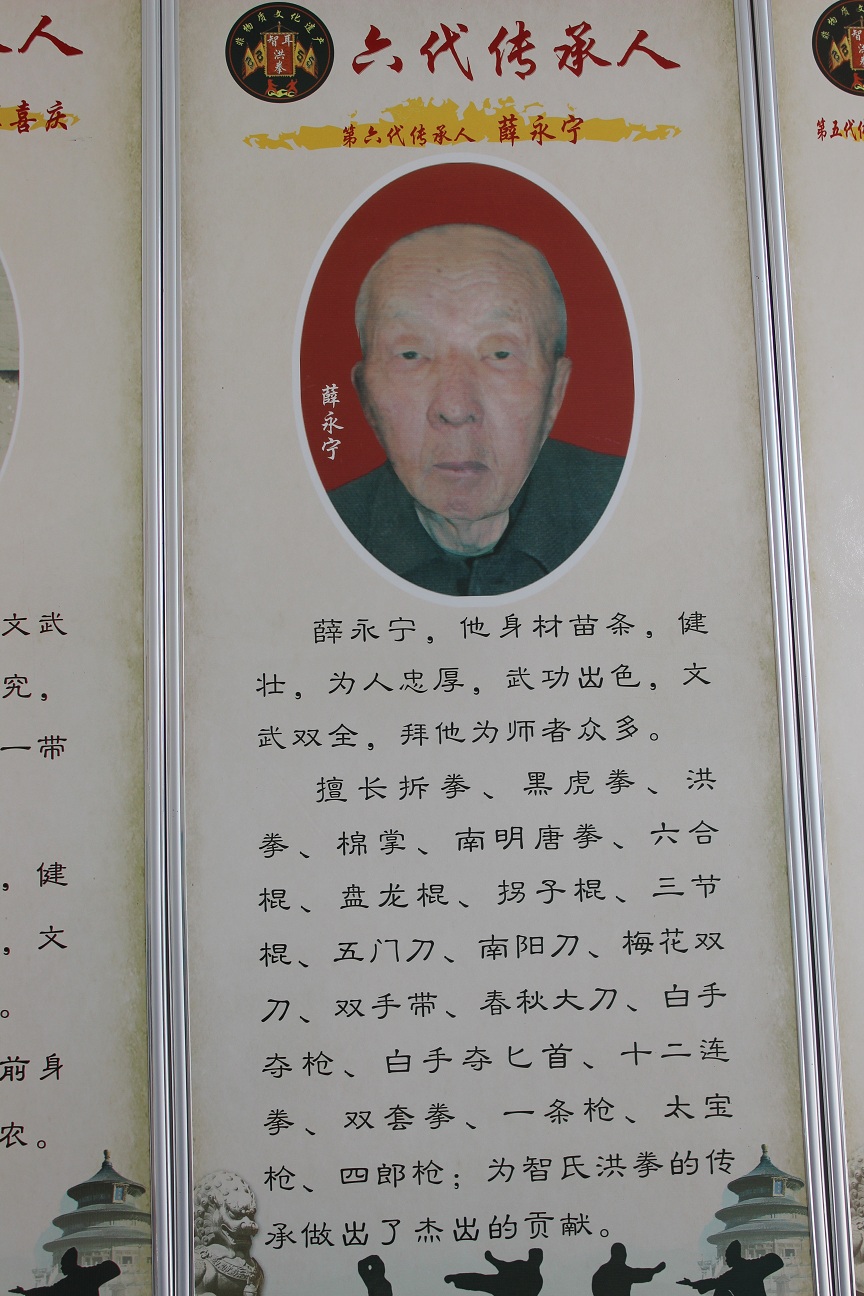 人
喜庆
文武
究，
一带
，健
，文
。
前身
农。
非物质文化遗产
智耳
洪
拳
六代传承人
第六代传承人 薛永宁
薛永宁
薛永宁，他身材苗条，健
壮，为人忠厚，武功出色，文
武双全，拜他为师者众多。
擅长拆拳、黑虎拳、洪
拳、棉掌、南明唐拳、六合
棍、盘龙棍、拐子棍、三节
棍、五门刀、南阳刀、梅花双
刀、双手带、春秋大刀、白手
夺枪、白手夺匕首、十二连
拳、双套拳、一条枪、太宝
枪、四郎枪；为智氏洪拳的传
承做出了杰出的贡献。
第五代